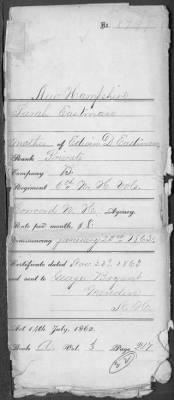 No.
New Hampshire
Sarah Eastman
mother of Edwin D. Eastman
Rank Private
Company B
Regiment 6th N. H. Vols.
Concord N. H. Agency.
Rate per month, $8
Commencing January 20th 1863
Certificate dated Nov. 23 1863
and sent to George
N. H.
Act 14th July, 1862.
Book A Vol. 3 Page 217